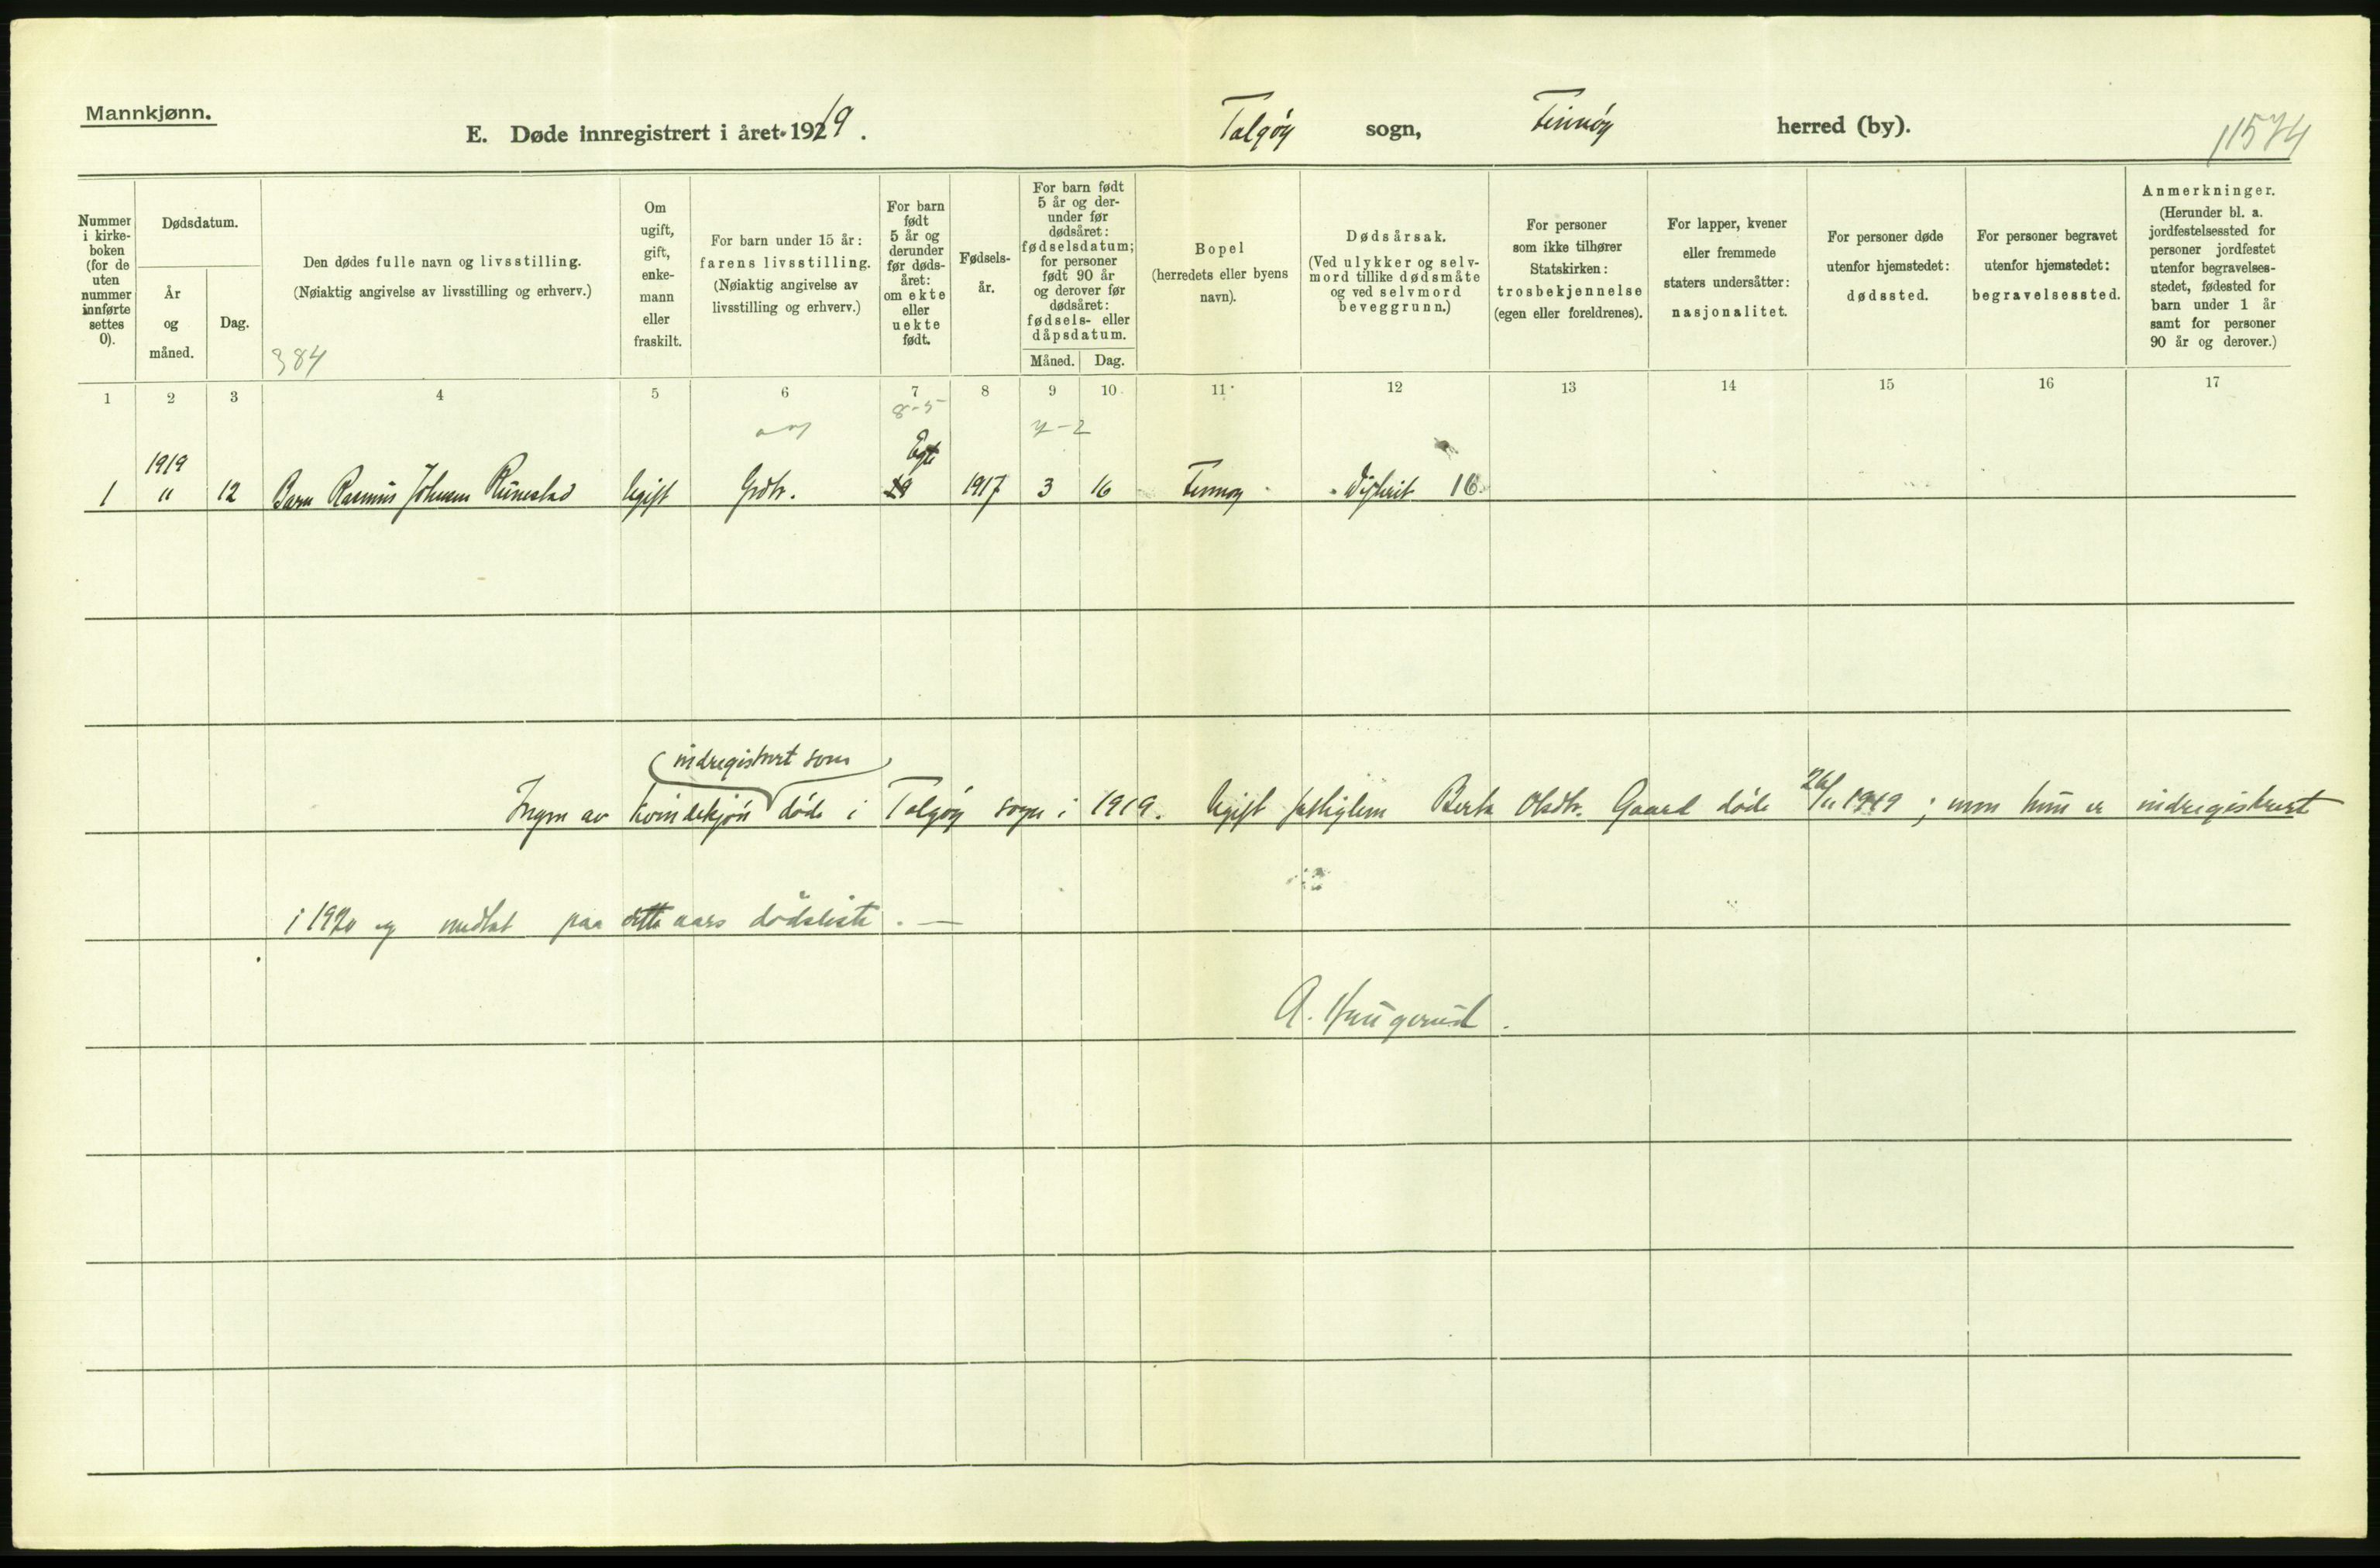 Mannkjønn.
E. Døde innregistrert i året 1919. Talgøy sogn, Finnøy herred (by).
11574
Nummer i kirkeboken (for de uten nummer innførte settes 0).
Dødsdatum.
År og måned.
Dag.
Den dødes fulle navn og livsstilling.
(Nøiaktig angivelse av livsstilling og erhverv.)
384
Om ugift, gift, enkemann eller fraskilt.
For barn under 15 år: farens livsstilling. (Nøiaktig angivelse av livsstilling og erhverv.)
For barn født 5 år og derunder før dødsåret: om ekte eller uekte født.
Fødselsår.
For barn født 5 år og derunder før dødsåret: fødselsdatum; for personer født 90 år og derover før dødsåret: fødsels- eller dåpsdatum.
Måned. Dag.
Bopel (herredets eller byens navn).
Dødsårsak. (Ved ulykker og selvmord tillike dødsmåte og ved selvmord beveggrunn.)
For personer som ikke tilhører Statskirken: trosbekjennelse (egen eller foreldrenes).
For lapper, kvener eller fremmede staters undersåtter: nasjonalitet.
For personer døde utenfor hjemstedet: dødssted.
For personer begravet utenfor hjemstedet: begravelsessted.
Anmerkninger. (Herunder bl. a. jordfestelsessted for personer jordfestet utenfor begravelsesstedet, fødested for barn under 1 år samt for personer 90 år og derover.)
1 2 3 4 5 6 7 8 9 10 11 12 13 14 15 16 17
8-5
4-2
1919
Egte
1 " 12 Barn Rasmus Johnsen Runestad Ugift Grdbr. 1917 3 16 Finnøy Difterit 16
indregistrert som
Ingen av kvindekjøn døde i Talgøy sogn i 1919. Ugift fattiglem Berta Olsdtr. Gaard døde 26/11 1919; men hun er indregistrert
i 1920 og medtat paa dette aars dødsliste. —
A. Haugerud.